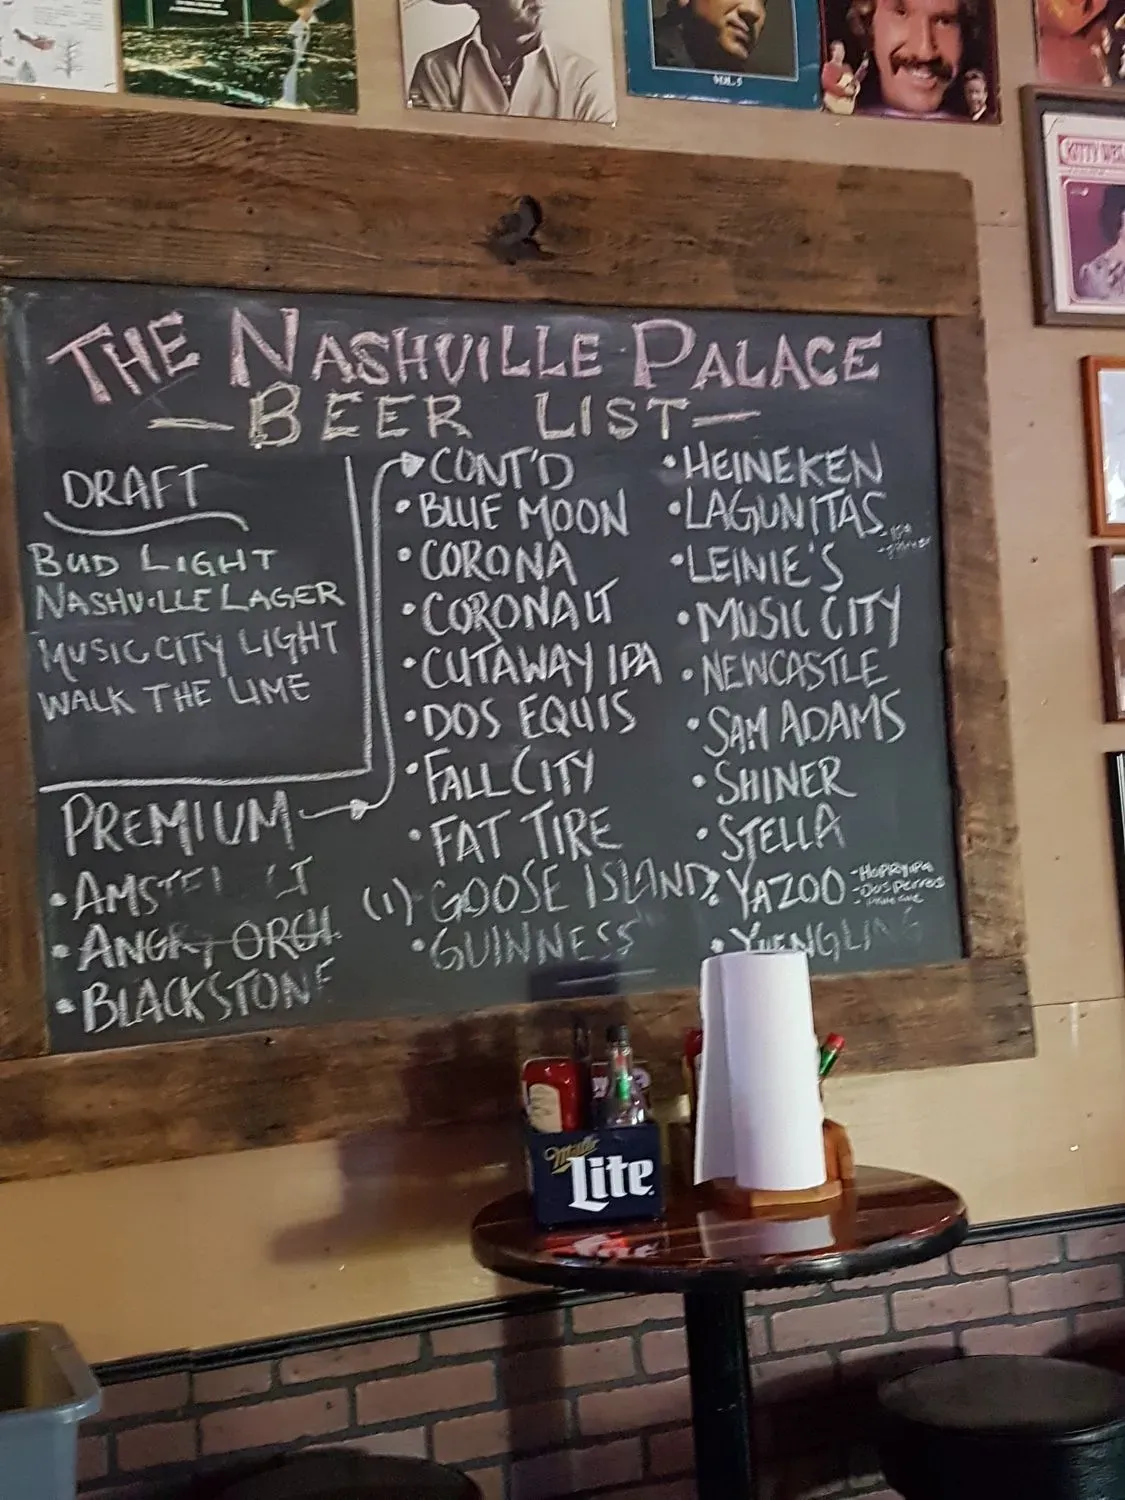 VOL. 5
KITTY WEL
THE NASHVILLE PALACE
— BEER LIST —
DRAFT
BUD LIGHT
NASHVILLE LAGER
MUSIC CITY LIGHT
WALK THE LIME
PREMIUM
• AMSTEL LT
• ANGRY ORCH.
• BLACKSTONE
• CONT'D
• BLUE MOON
• CORONA
• CORONA LT
• CUTAWAY IPA
• DOS EQUIS
• FALL CITY
• FAT TIRE
(1) GOOSE ISLAND
• GUINNESS
• HEINEKEN
• LAGUNITAS
- IPA
• LEINIE'S
• MUSIC CITY
• NEWCASTLE
• SAM ADAMS
• SHINER
• STELLA
• YAZOO
- HOPRY IPA
- DOS PERROS
- PALE ALE
• YUENGLING
Miller
Lite